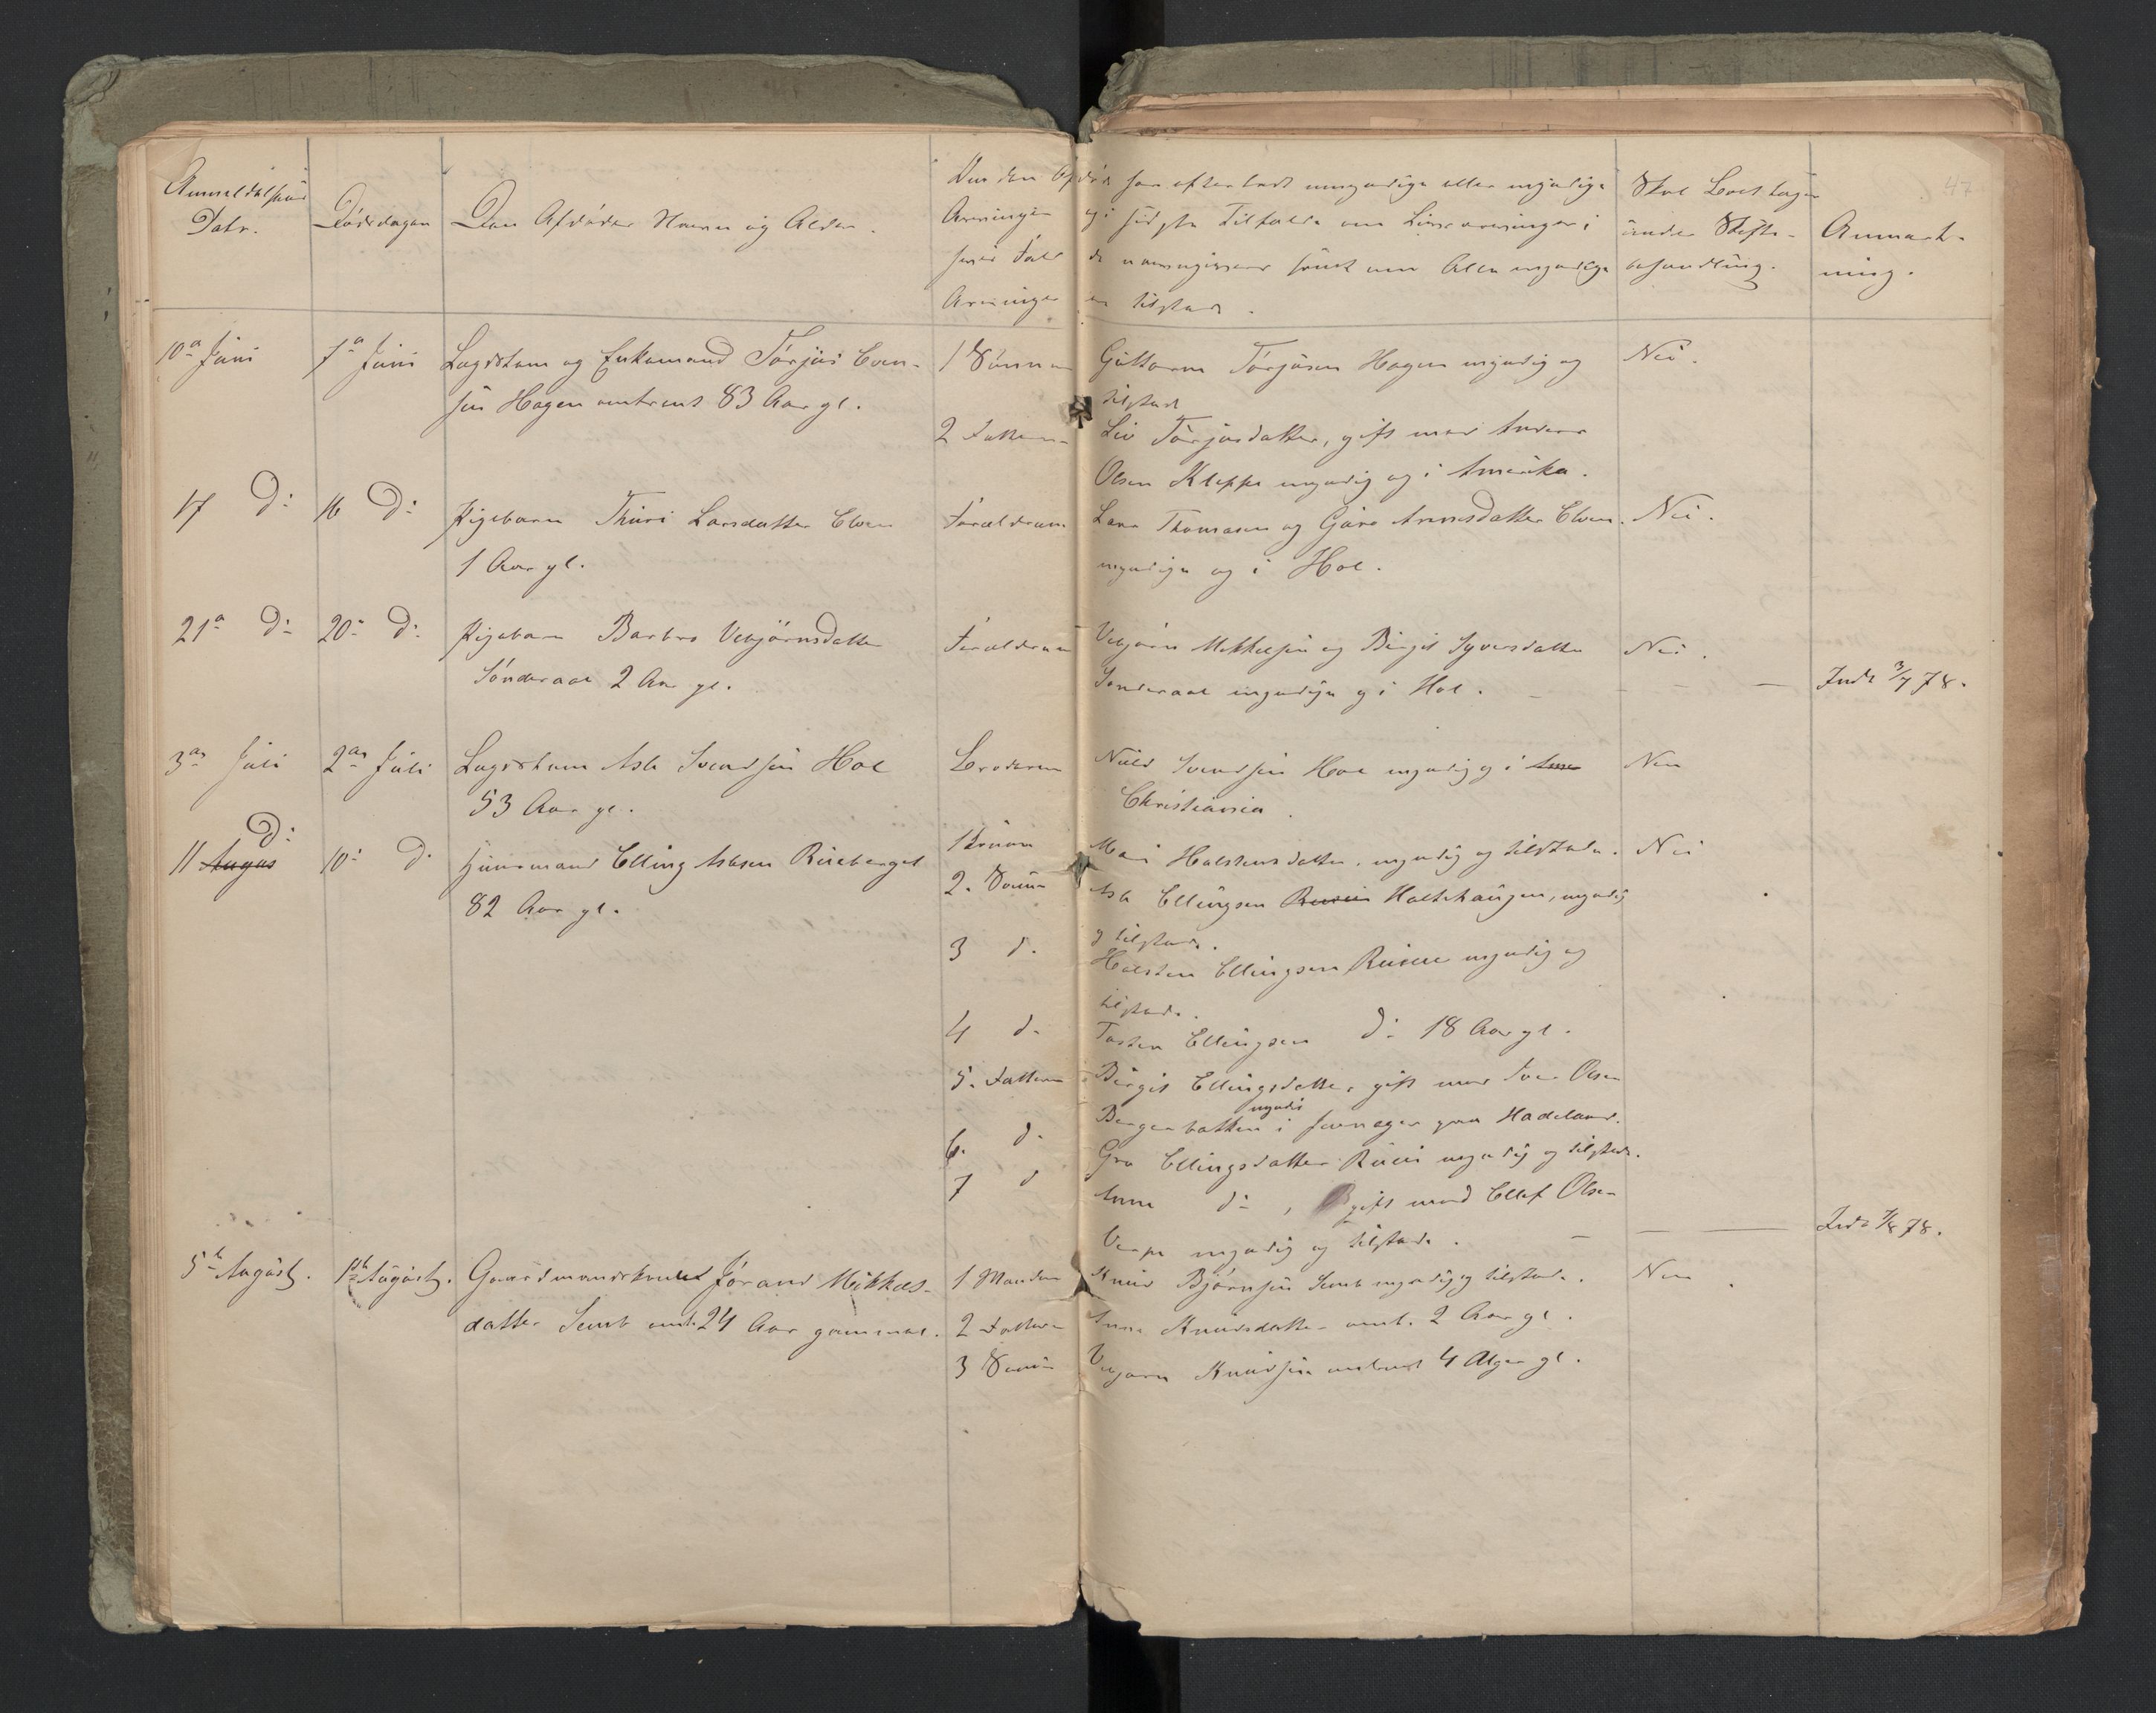 47
Anmeldelsens
Dato.
Dødsdagen
Den Afdødes Navn og Alder.
Om den Afdøde har efterladt umyndige eller myndige
Arvinger og i sidste Tilfælde om Livsarvinger i
hvis Fald de navngives samt om Alle myndige
Arvinger er tilstede.
Skal Boet tages
under Skifte-
behandling.
Anmærk-
ning.
10de Juni
7de Juni
Lægdslem og Enkemand Torjus Even-
sen Hagen omtrent 83 Aar gl.
1 Sønnen
Guttorm Torjusen Hagen myndig og
tilstede
Nei.
2 Datteren
Liv Torjusdatter, gift med Anders
Olsen Kleppe myndig og i Amerika.
17 D:
16 D:
Pigebarn Thuri Larsdatter
1 Aar gl.
Forældrene
Lars Thomasen og Guro Arnesdatter
myndige og i Hol.
Nei.
21de D:
20de D:
Pigebarn Barbro Vebjørnsdatter
Sønderaal 2 Aar gl.
Forældrene
Vebjørn Mikkelsen og Birgit Syversdatter
Sønderaal myndige og i Hol.
Nei.
Indb 3/7 78.
3die Juli
2den Juli
Lægdslem Asle Svendsen Hol
53 Aar gl.
Broderen
Nuld Svendsen Hol myndig og i Ame
Christiania.
Nei
11 Augus D:
10de D:
Huusmand Elling Aslesen Rueberget
82 Aar gl.
1 Konen
Mari Halstensdatter, myndig og tilstede.
Nei
2. Sønn
Asle Ellingsen Holtehaugen, myndig
og tilstede.
3 d.
Halsten Ellingsen myndig og
tilstede.
4 d.
Tosten Ellingsen D: 18 Aar gl.
5. Datteren
Birgit Ellingsdatter, gift med Iver Olsen
Bergerbakken myndi i Jevnager paa Hadeland.
6. d.
Gro Ellingsdatter myndig og tilstede.
7 d
Anne d:, gift med Ellef Olsen
myndig og tilstede.
Indb 7/8 78.
5te August.
1ste August.
Gaardmandskone Jørand Mikkels-
datter Sunt omt. 24 Aar gammel.
1 Manden
Knud Bjørnsen Sunt myndig og tilstede.
Nei
2 Datteren
Anne Knudsdatter omt. 2 Aar gl.
3 Sønn
Vebjørn Knudsen omtrent 4 Uger gl.